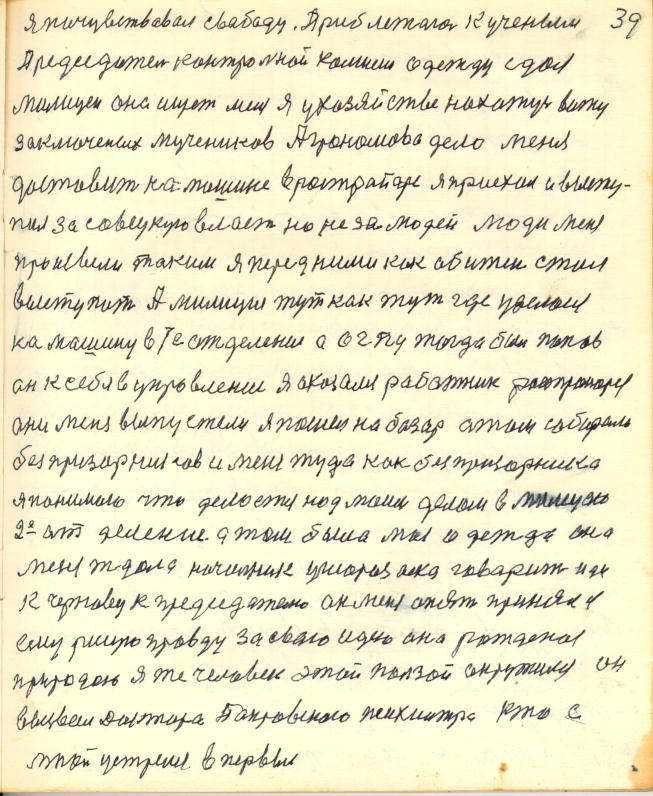 я почувствовал свабаду. Приблетался к ученвми 39
Председател контролной комисии одежду сдал
милицеи она ищет меня я ухозяйстве нахожус вижу
заключеных мучеников Агрономова дело меня
доставит на машине в рострайторг я приехал и высту-
пил за совецкую власт но не за людей люди меня
произвели таким я перед ними как абижен стал
выступат А милиция тут как тут где уделас
на машину в 7е отделение а ОГПУ тогда был попов
он к себя в управление я аказался работник
они меня выпустели я пошел на базар а там собирали
безпризорников и меня туда как безпризорника
я понимаю что делается над моим делом в
2е отделение. а там была моя одежда она
меня ждала началник угорозыска говарит иди
к чернавец к председателю он меня опят принял я
ему режю правду за сваю идею она рождена
природою я же человек этой ползой окружился он
вызвал Доктора Покровского психиатра кто с
мной устрелся впервые